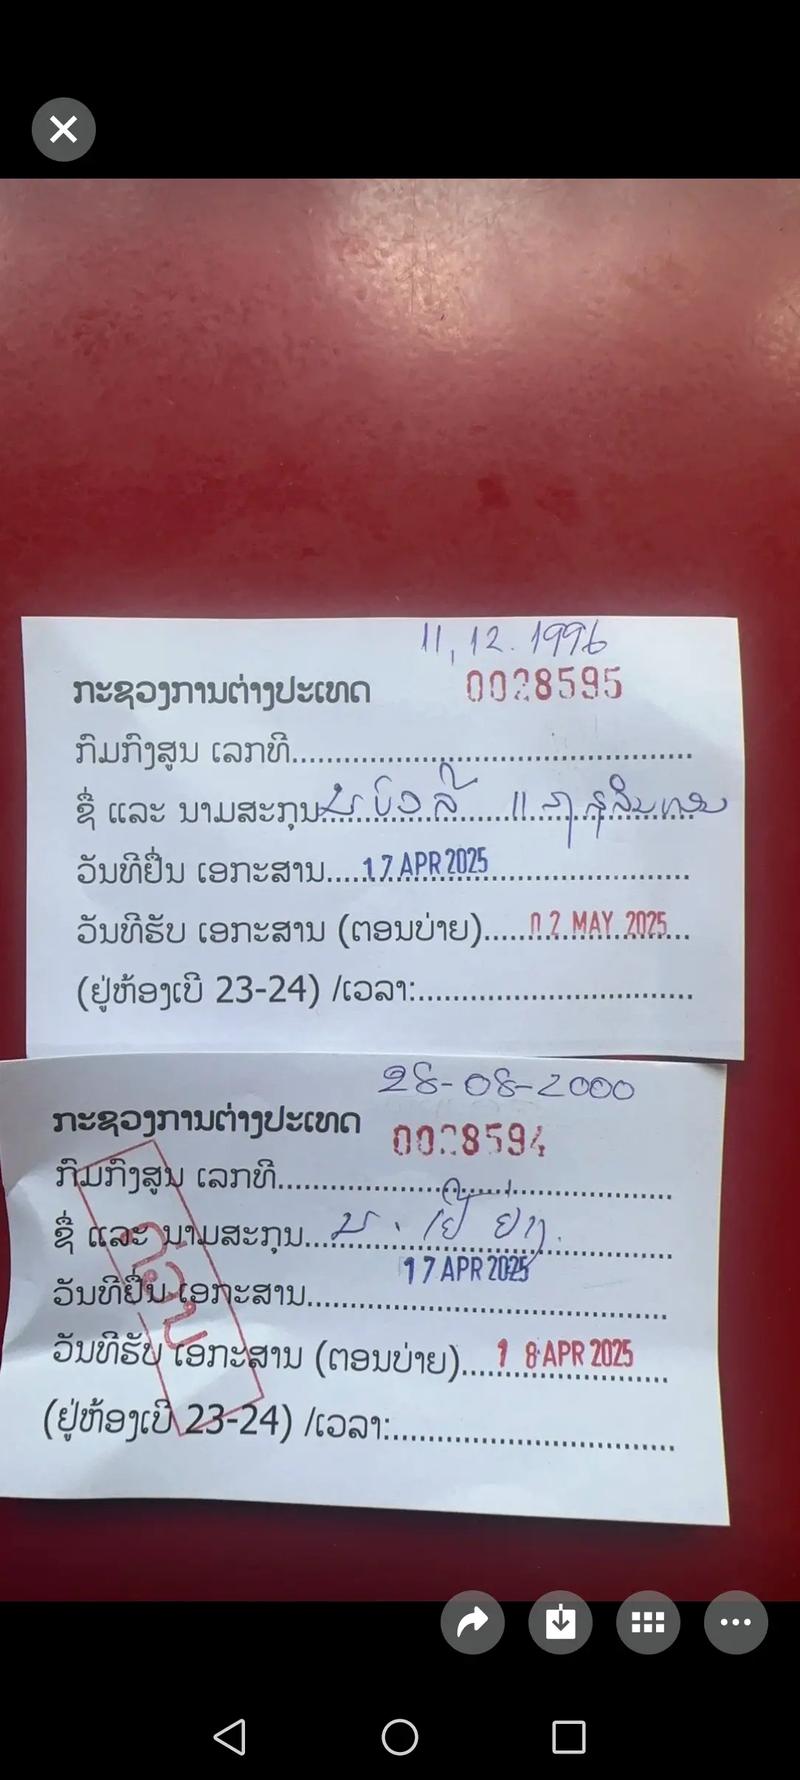 11, 12. 1996
ກະຊວງການຕ່າງປະເທດ 0028595
ກົມກົງສູນ ເລກທີ................................................
ຊື່ ແລະ ນາມສະກຸນ
ວັນທີຢື່ນ ເອກະສານ.....17 APR 2025..........................
ວັນທີຮັບ ເອກະສານ (ຕອນບ່າຍ)......02 MAY 2025...
(ຢູ່ຫ້ອງເບີ 23-24) /ເວລາ:.................................
28-08-2000
ກະຊວງການຕ່າງປະເທດ 0028594
ກົມກົງສູນ ເລກທີ................................................
ຊື່ ແລະ ນາມສະກຸນ... ນ. ເຢ ຢ່າງ.
17 APR 2025
ວັນທີຢື່ນ ເອກະສານ............................................
ດ່ວນ
ວັນທີຮັບ ເອກະສານ (ຕອນບ່າຍ)....18 APR 2025
(ຢູ່ຫ້ອງເບີ 23-24) /ເວລາ:.................................